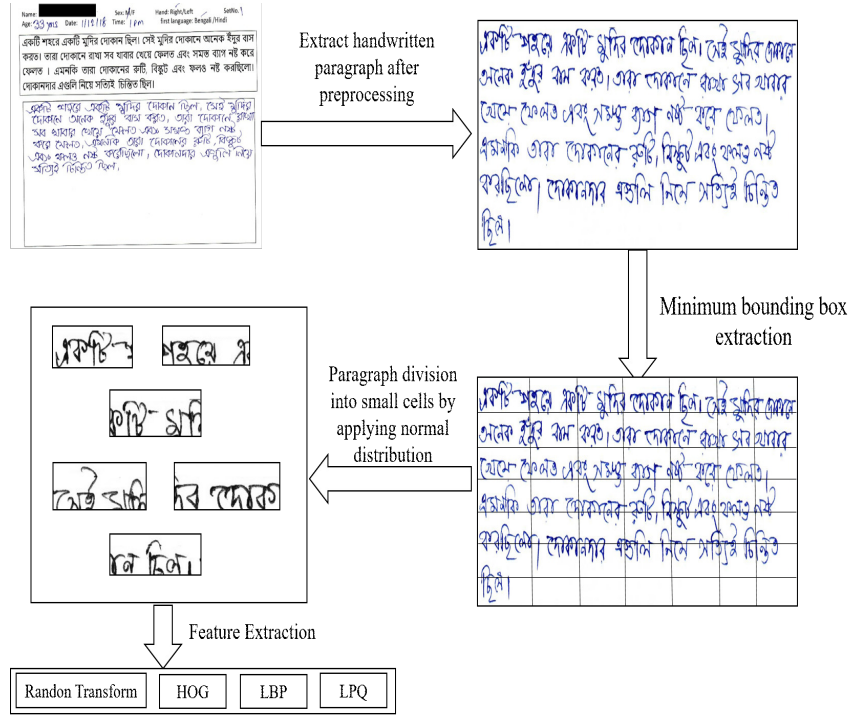 Name: Sex: M/F Hand: Right/Left SetNo. 1
Age: 33 yrs Date: 1/12/18 Time: 1 pm first language: Bengali/Hindi
একটি শহরে একটি মুদির দোকান ছিল। সেই মুদির দোকানে অনেক ইঁদুর বাস
করত। তারা দোকানে রাখা সব খাবার খেয়ে ফেলত এবং সমস্ত ব্যাগ নষ্ট করে
ফেলত । এমনকি তারা দোকানের রুটি, বিস্কুট এবং ফলও নষ্ট করছিলো।
দোকানদার এগুলি নিয়ে সত্যিই চিন্তিত ছিল।
একটি শহরে একটি মুদির দোকান ছিল, সেই মুদির
দোকানে অনেক ইঁদুর বাস করত, তারা দোকানে রাখা
সব খাবার খেয়ে ফেলত এবং সমস্ত ব্যাগ নষ্ট
করে ফেলত, এমনকি তারা দোকানের রুটি, বিস্কুট
এবং ফলও নষ্ট করেছিলো, দোকানদার এগুলি নিয়ে
সত্যিই চিন্তিত ছিল,
Extract handwritten
paragraph after
preprocessing
একটি শহরে একটি মুদির দোকান ছিল। সেই মুদির দোকানে
অনেক ইঁদুর বাস করত। তারা দোকানে রাখা সব খাবার
খেয়ে ফেলত এবং সমস্ত ব্যাগ নষ্ট করে ফেলত।
এমনকি তারা দোকানের রুটি, বিস্কুট এবং ফলও নষ্ট
করছিলো। দোকানদার এগুলি নিয়ে সত্যিই চিন্তিত
ছিল।
Minimum bounding box
extraction
একটি শহরে একটি মুদির দোকান ছিল। সেই মুদির দোকানে
অনেক ইঁদুর বাস করত। তারা দোকানে রাখা সব খাবার
খেয়ে ফেলত এবং সমস্ত ব্যাগ নষ্ট করে ফেলত।
এমনকি তারা দোকানের রুটি, বিস্কুট এবং ফলও নষ্ট
করছিলো। দোকানদার এগুলি নিয়ে সত্যিই চিন্তিত
ছিল।
Paragraph division
into small cells by
applying normal
distribution
একটি
শহরে এ
কটি মুদি
সেই মুদি
দির দোক
ন ছিল।
Feature Extraction
Randon Transform HOG LBP LPQ